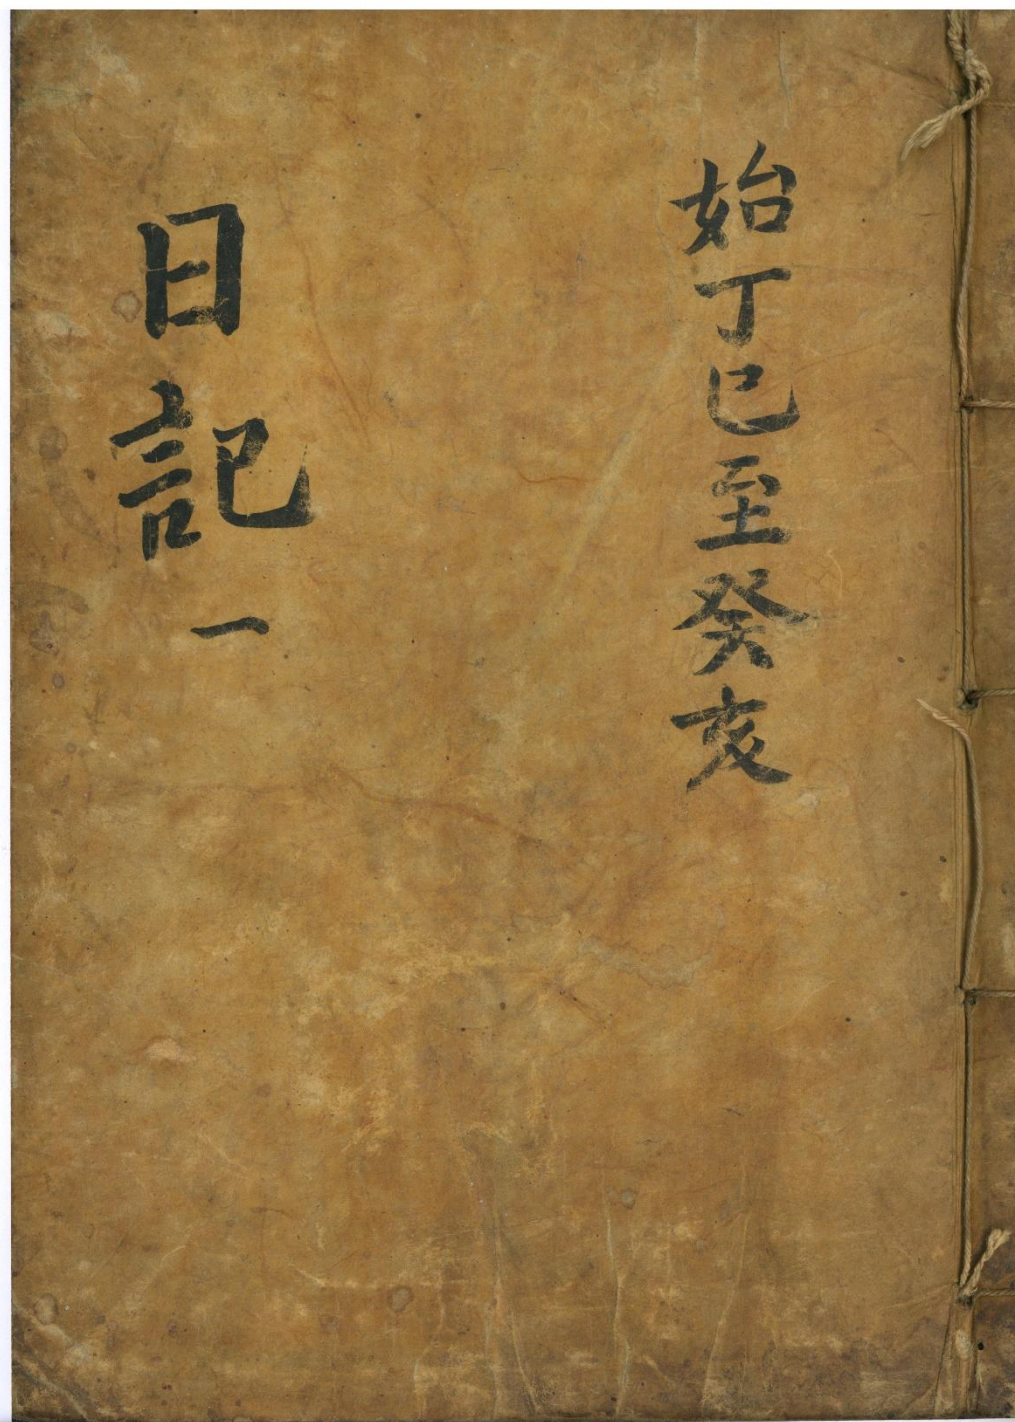 始丁巳至癸亥
日記 一